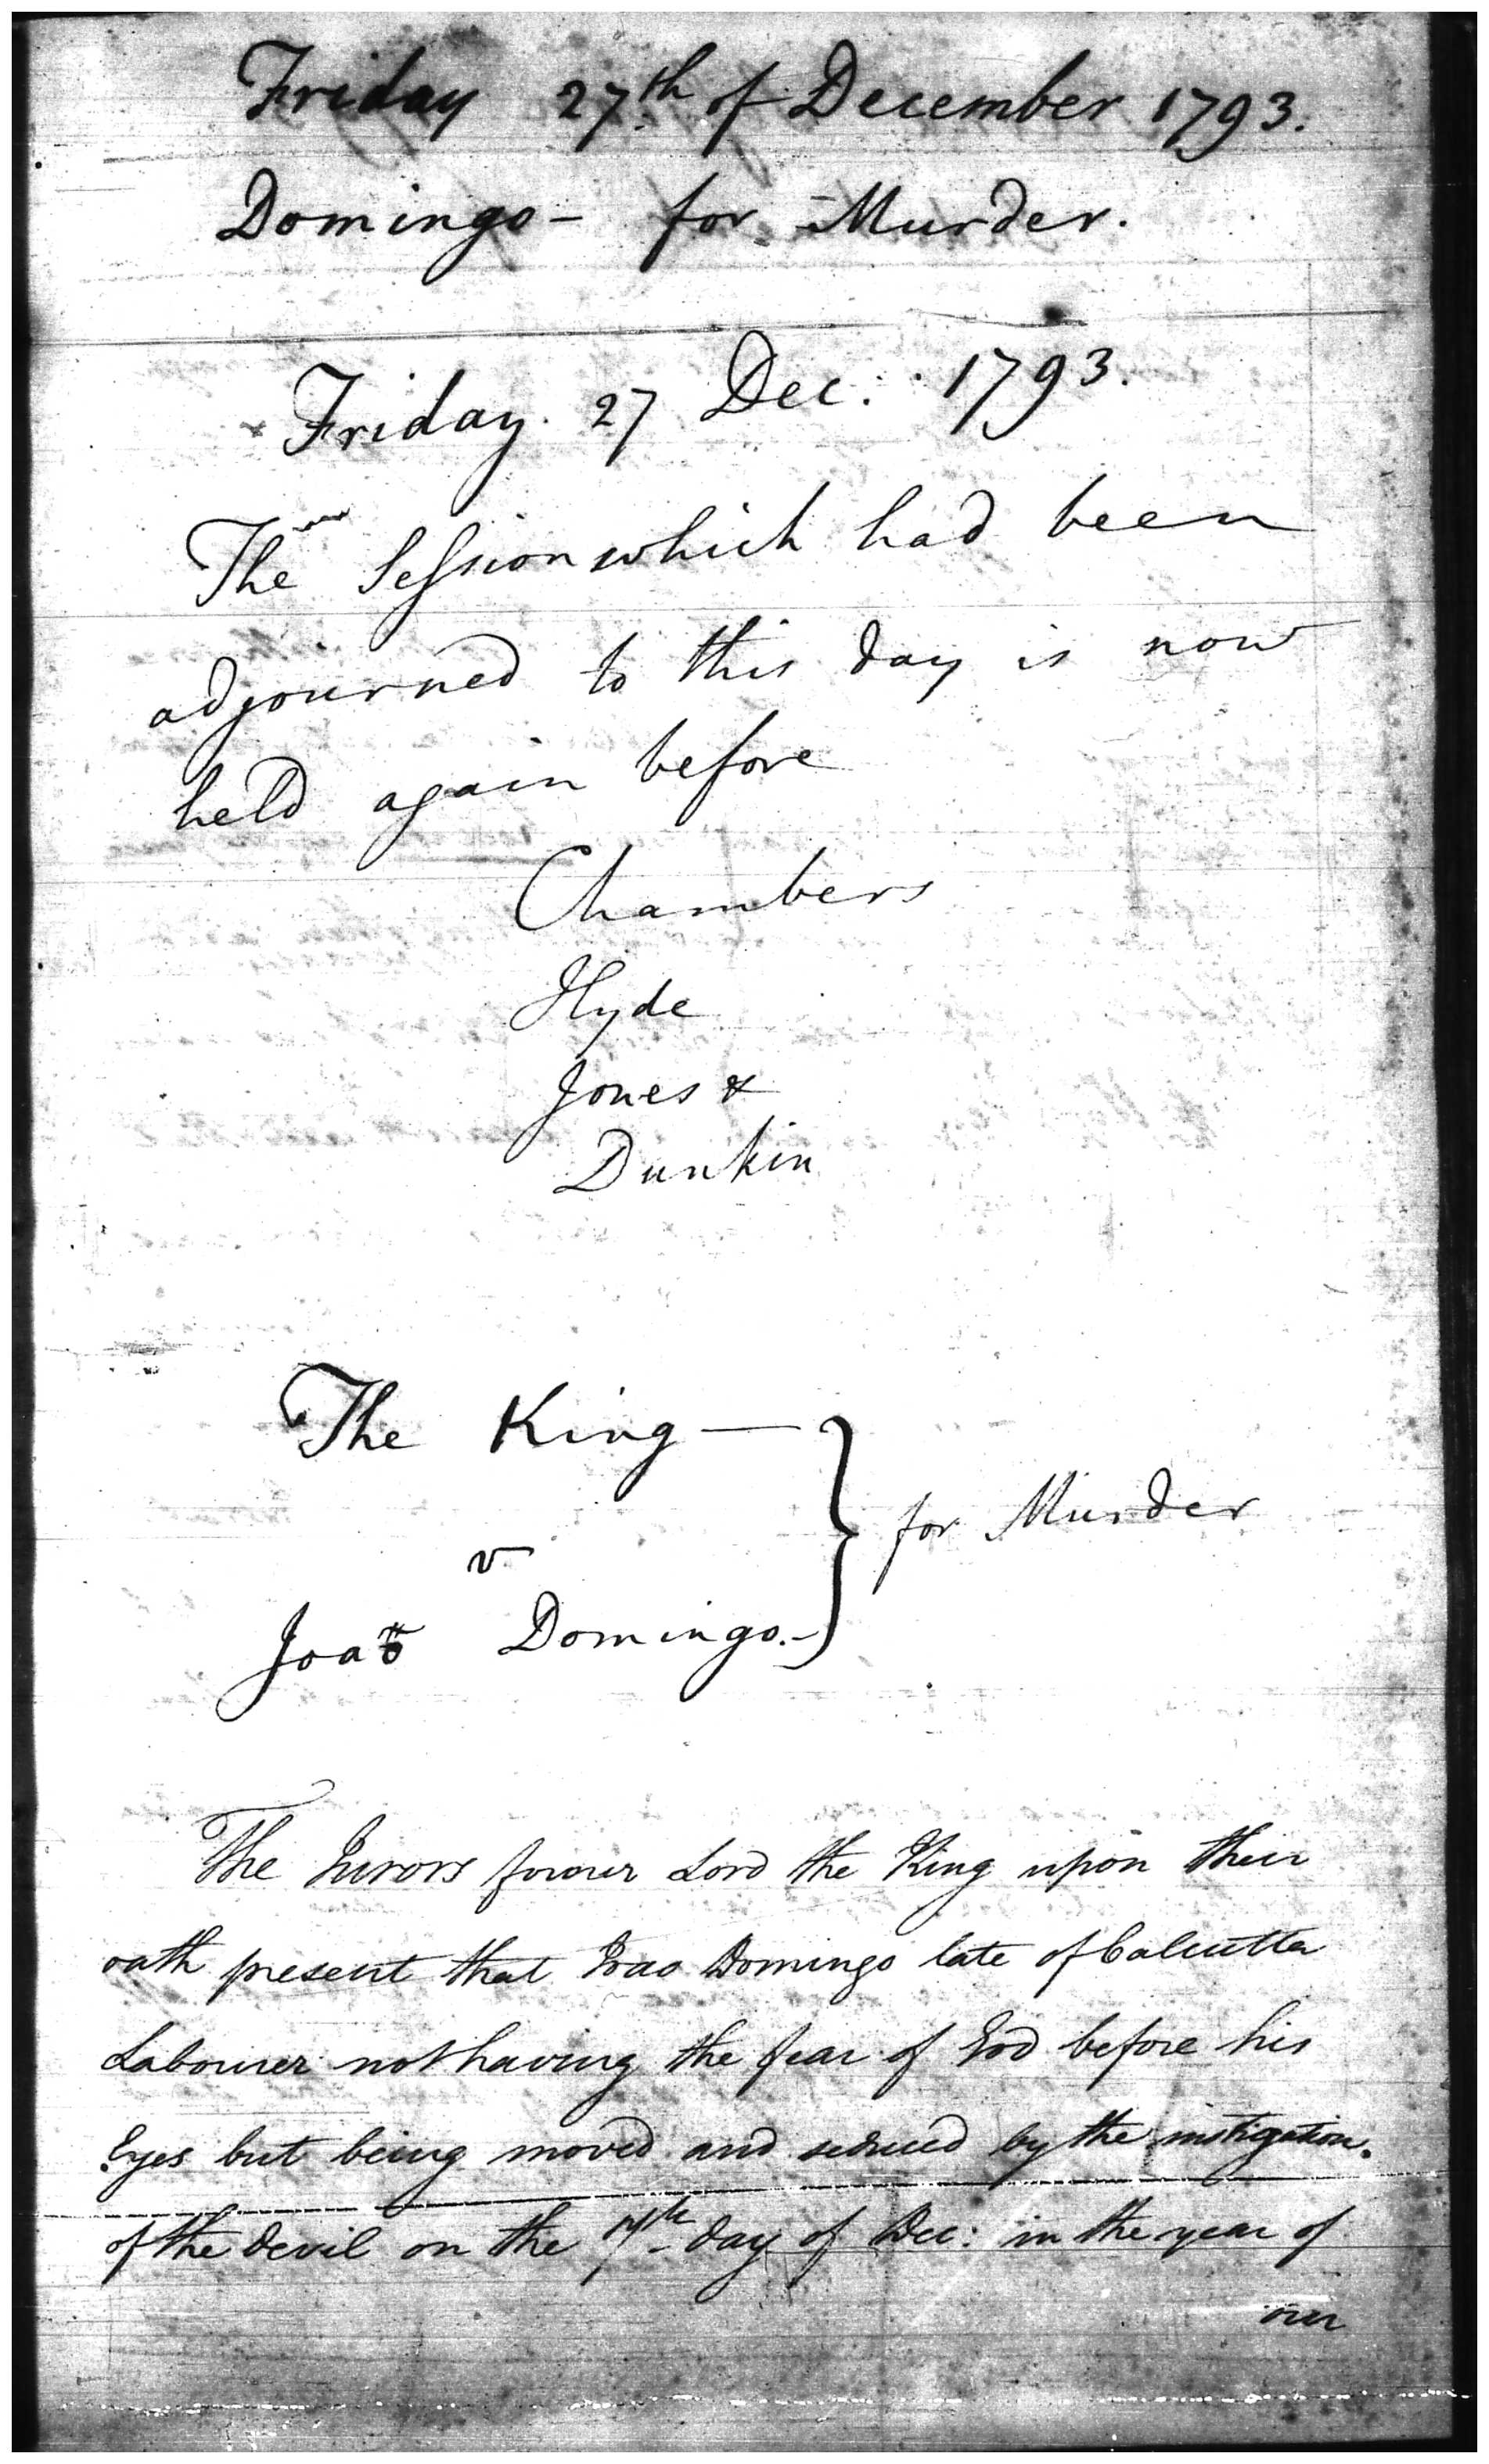 Friday 27th of December 1793.
Domingo - for Murder.
Friday. 27 Dec: 1793.
The Session which had been
adjourned to this day is now
held again before
Chambers
Hyde
Jones &
Dunkin
The King —
v
Joaõ Domingo. -
for Murder
The Jurors for our Lord the King upon their
oath present that Joao Domingo late of Calcutta
Labourer not having the fear of God before his
Eyes but being moved and seduced by the instigation
of the devil on the 7th day of Dec: in the year of
our